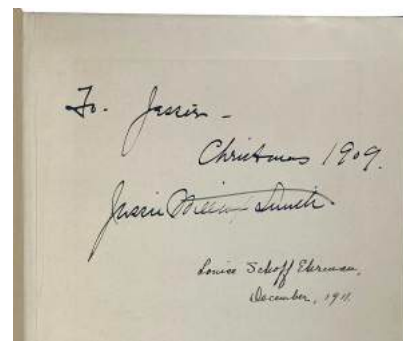 To. Jessie -
Christmas 1909.
Jessie Willcox Smith.
Louise Schoff Ehrman,
December, 1911.